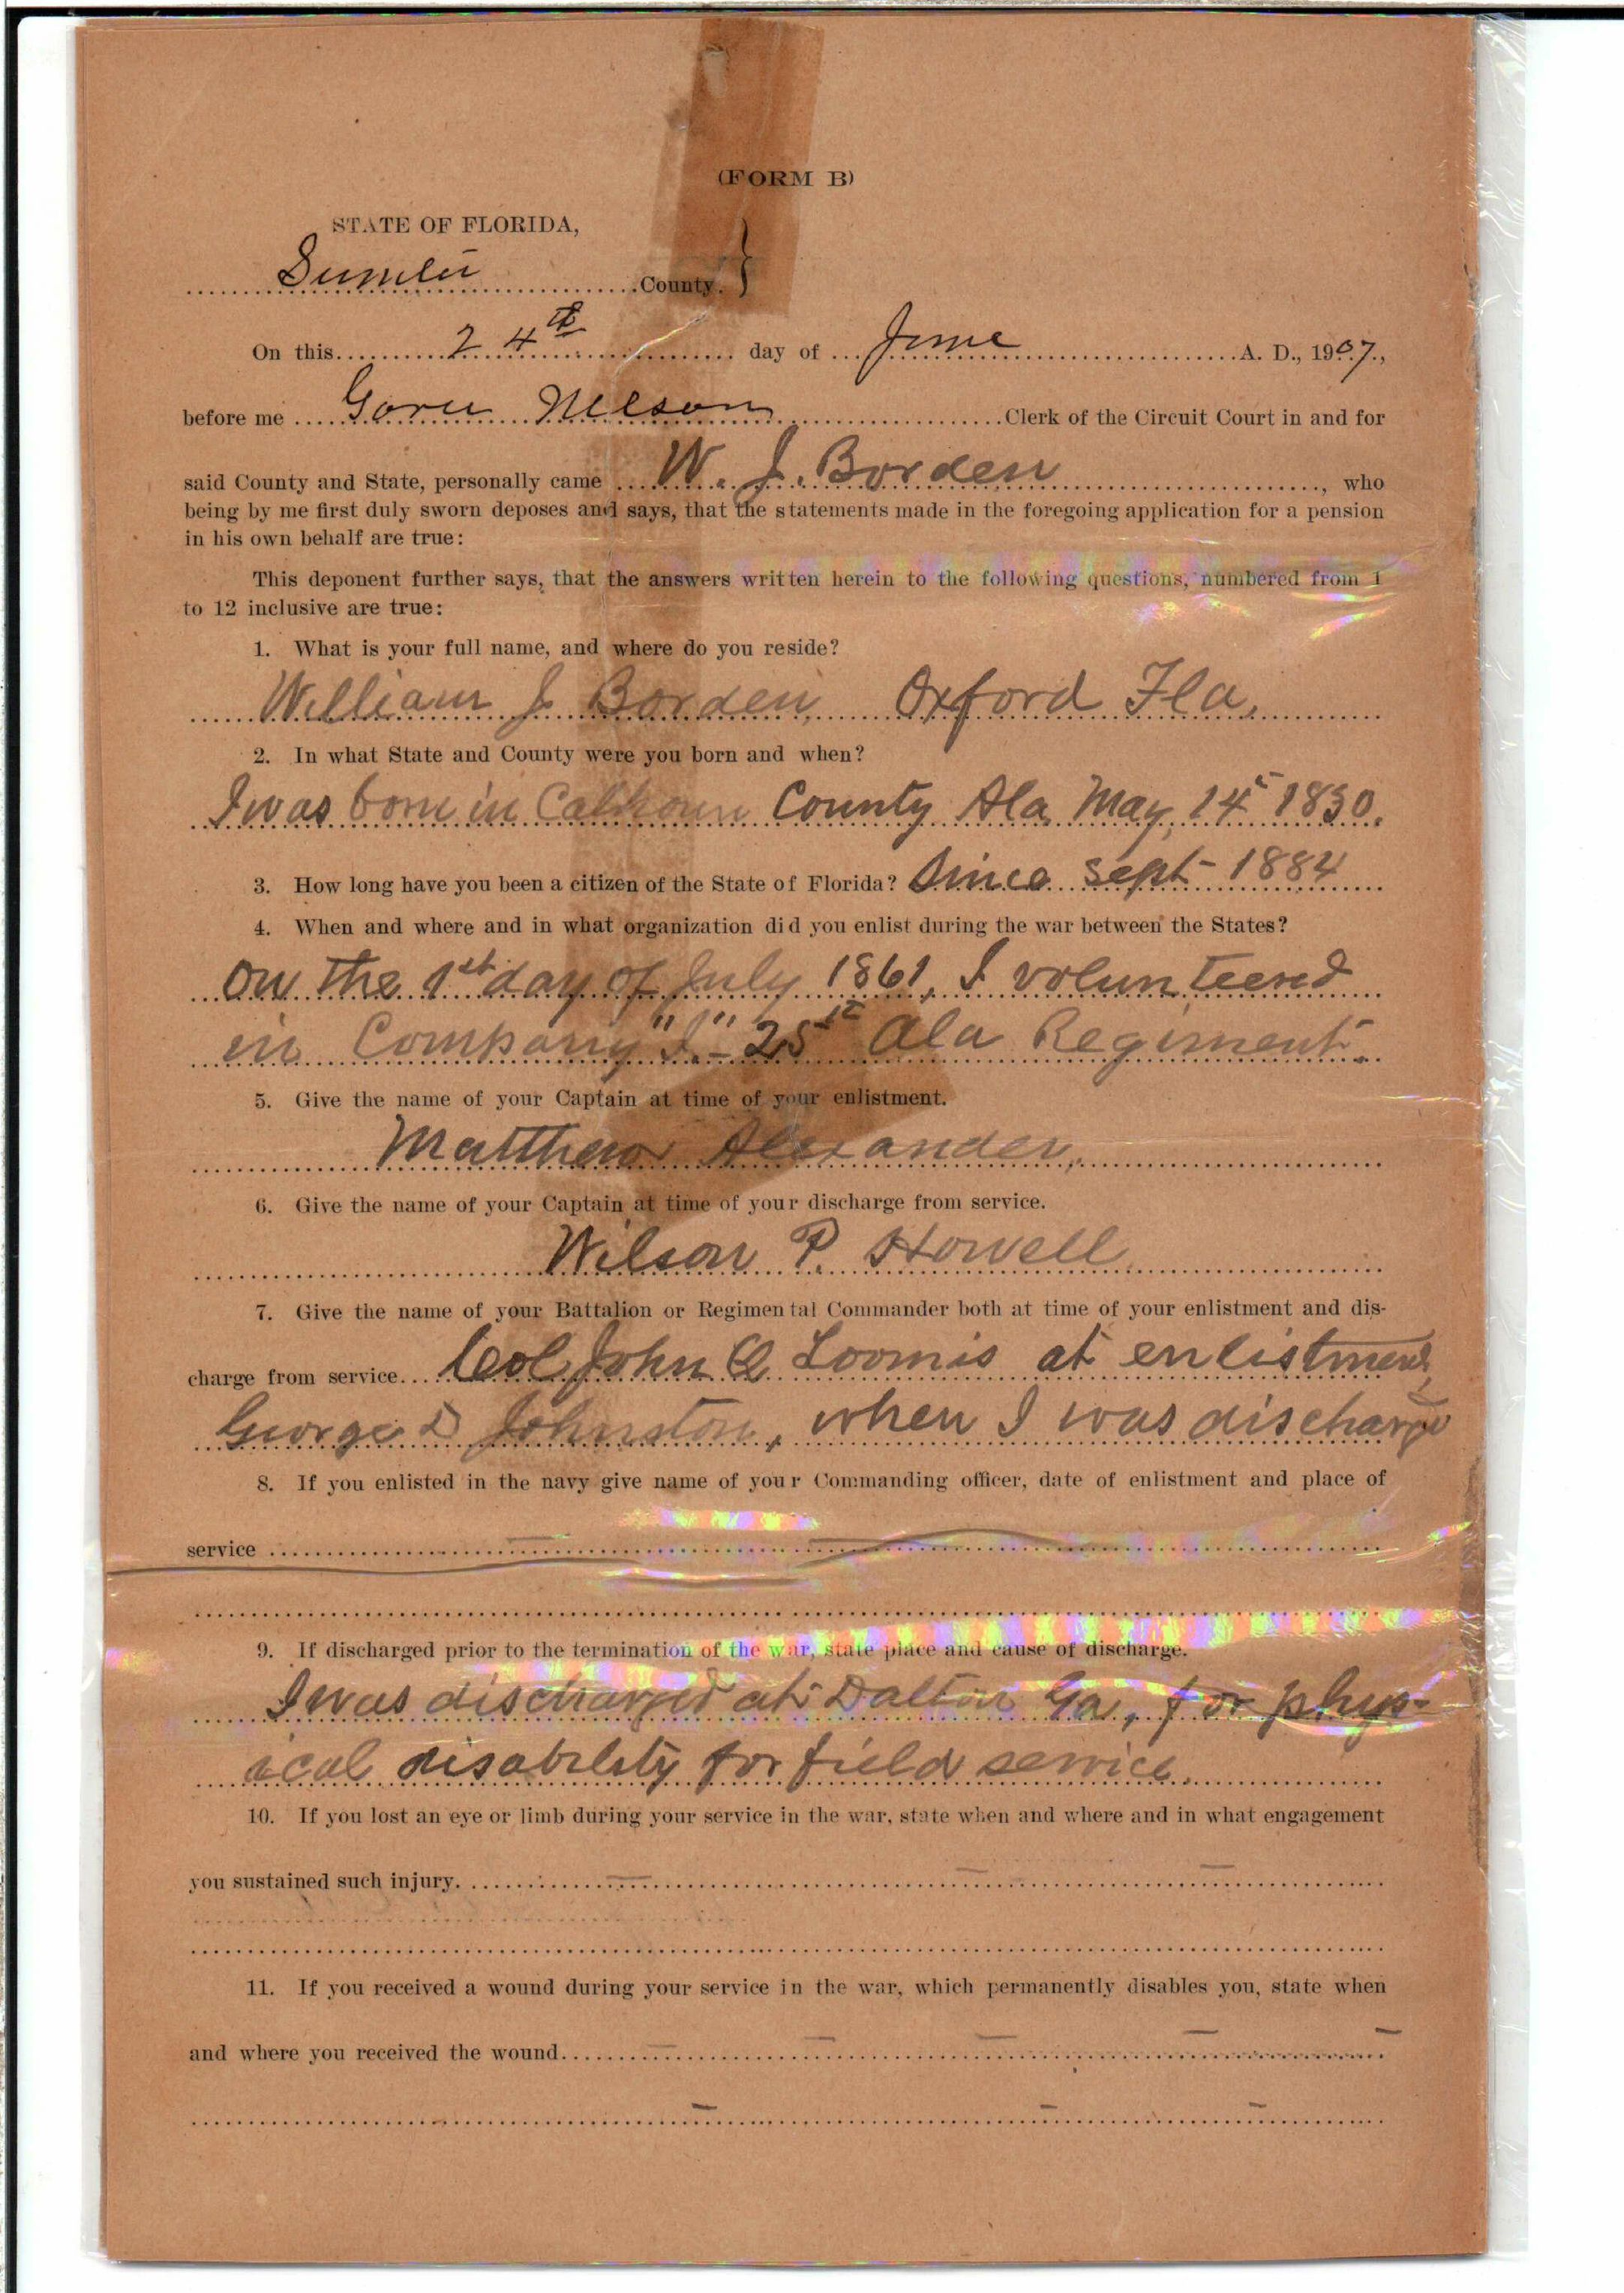 (FORM B)
STATE OF FLORIDA,
Sumter County. }
On this 24th day of June A. D., 1907.,
before me Nelson Clerk of the Circuit Court in and for
said County and State, personally came W. J. Borden, who
being by me first duly sworn deposes and says, that the statements made in the foregoing application for a pension
in his own behalf are true:
This deponent further says, that the answers written herein to the following questions, numbered from 1
to 12 inclusive are true:
1. What is your full name, and where do you reside?
William J. Borden, Oxford Fla.
2. In what State and County were you born and when?
I was born in Calhoun County Ala May 14th 1830.
3. How long have you been a citizen of the State of Florida? Since Sept- 1884
4. When and where and in what organization did you enlist during the war between the States?
On the 1st day of July 1861, I volunteered
in Company "I"- 25th Ala Regiment.
5. Give the name of your Captain at time of your enlistment.
Matthew Alexander,
6. Give the name of your Captain at time of your discharge from service.
Wilson P. Howell
7. Give the name of your Battalion or Regimental Commander both at time of your enlistment and dis-
charge from service. Col John Q Loomis at enlistment,
George D Johnston, when I was discharge
8. If you enlisted in the navy give name of your Commanding officer, date of enlistment and place of
service
9. If discharged prior to the termination of the war, state place and cause of discharge.
I was discharged at Dalton Ga, for phys-
ical disability for field service.
10. If you lost an eye or limb during your service in the war, state when and where and in what engagement
you sustained such injury.
11. If you received a wound during your service in the war, which permanently disables you, state when
and where you received the wound.